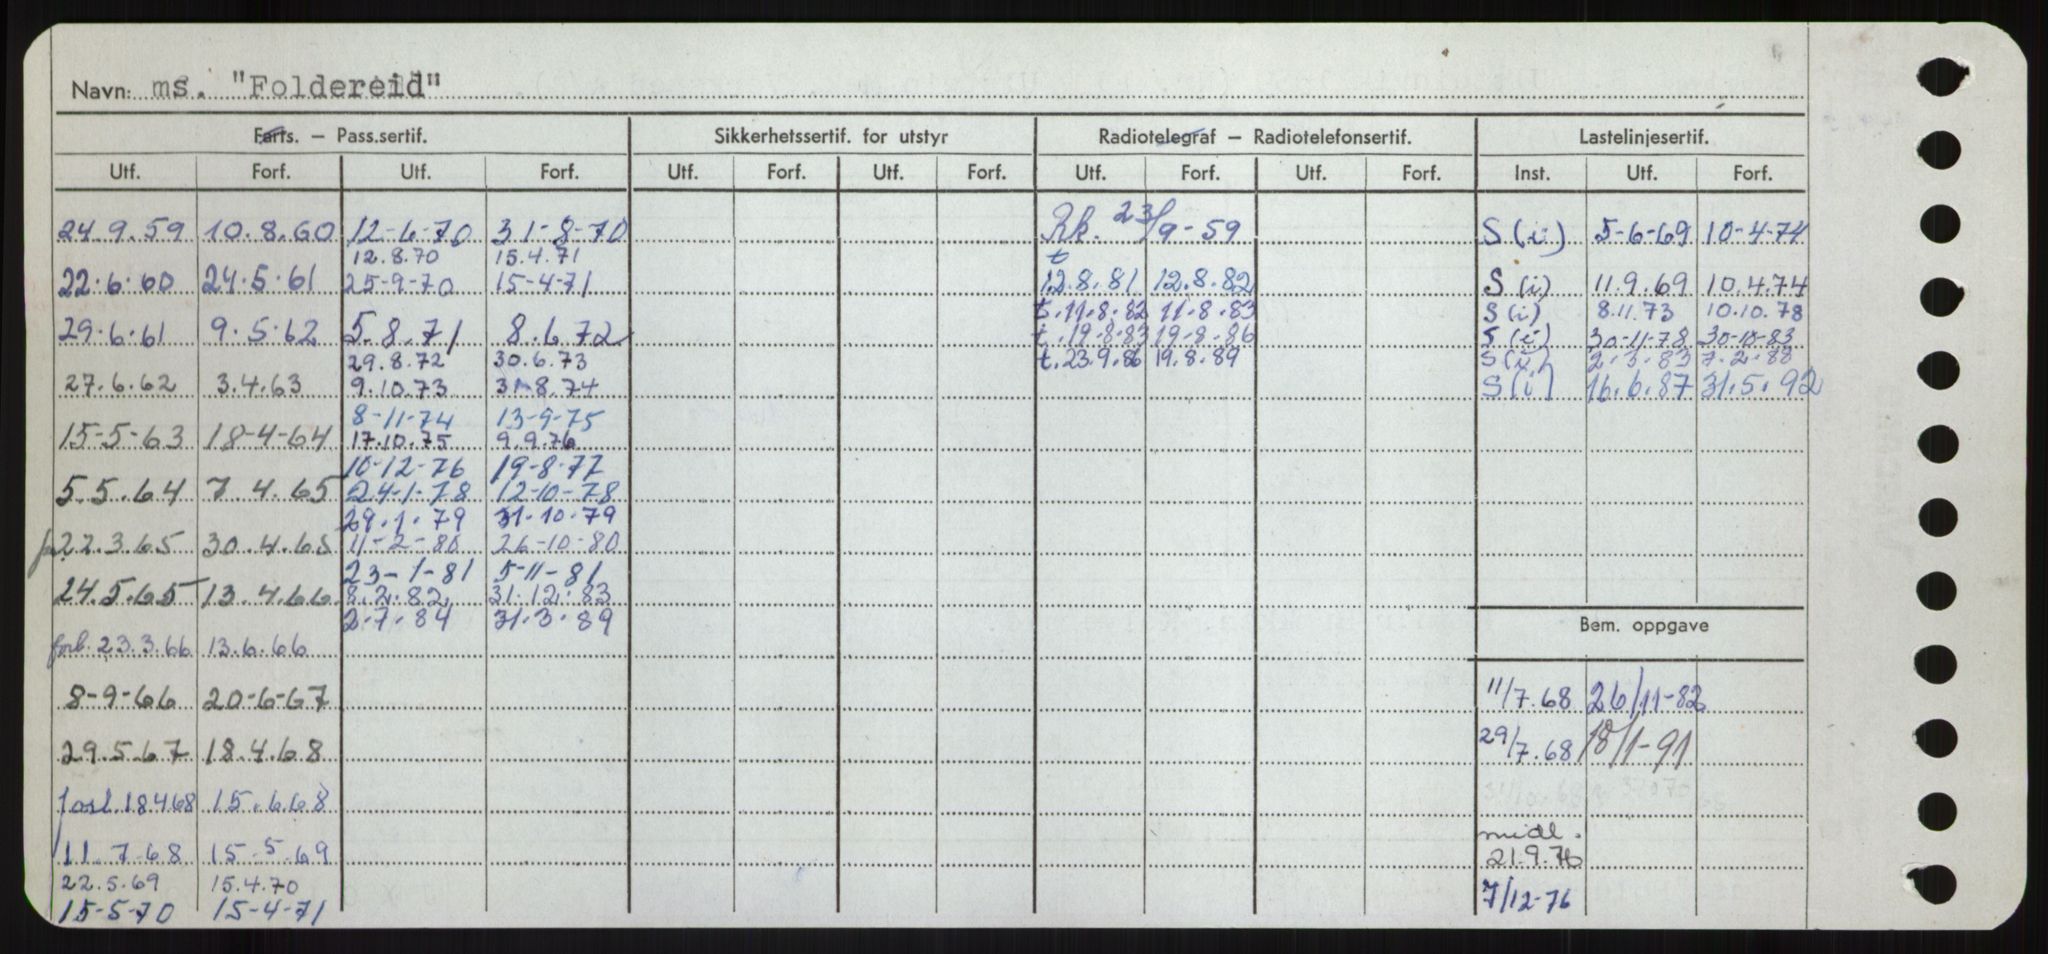 Navn: ms. "Foldereid"
Farts. – Pass.sertif. Sikkerhetssertif. for utstyr Radiotelegraf – Radiotelefonsertif. Lastelinjesertif.
Utf. Forf. Utf. Forf. Utf. Forf. Utf. Forf. Utf. Forf. Utf. Forf. Inst. Utf. Forf.
24.9.59 10.8.60 12-6-70 31-8-70 Rk. 23/9-59 S (i) 5-6-69 10-4-74
12.8.70 15.4.71 t
22.6.60 24.5.61 25-9-70 15-4-71 12.8.81 12.8.82 S (i) 11.9.69 10.4.74
t.11.8.82 11.8.83 S (i) 8.11.73 10.10.78
29.6.61 9.5.62 5.8.71 8.6.72 t.19.8.83 19.8.86 S (i) 30-11-78 30-10-83
29.8.72 30.6.73 t.23.9.86 19.8.89 S (i) 2.3.83 7.2.88
27.6.62 3.4.63 9.10.73 31-8.74 S (i) 16.6.87 31.5.92
8-11-74 13-9-75
15-5-63 18-4-64 17.10.75 9.9.76
10-12-76 19-8-77
5.5.64 7.4.65 24-1-78 12-10-78
29.1.79 31.10.79
22.3.65 30.4.65 11-2-80 26-10-80
23-1-81 5-11-81
24.5.65 13.4.66 8.2.82 31.12.83
2.7.84 31.3.89
Bem. oppgave
forl. 23.3.66 13.6.66
8-9-66 20-6-67 11/7.68 26/11-82
29.5.67 18.4.68 29/7.68 18/1-91
forl. 18468 15.6.68
midl.
11.7-68 15-5-69 21.9.76
22.5.69 15.4.70
15-5-70 15-4-71 7/12-76